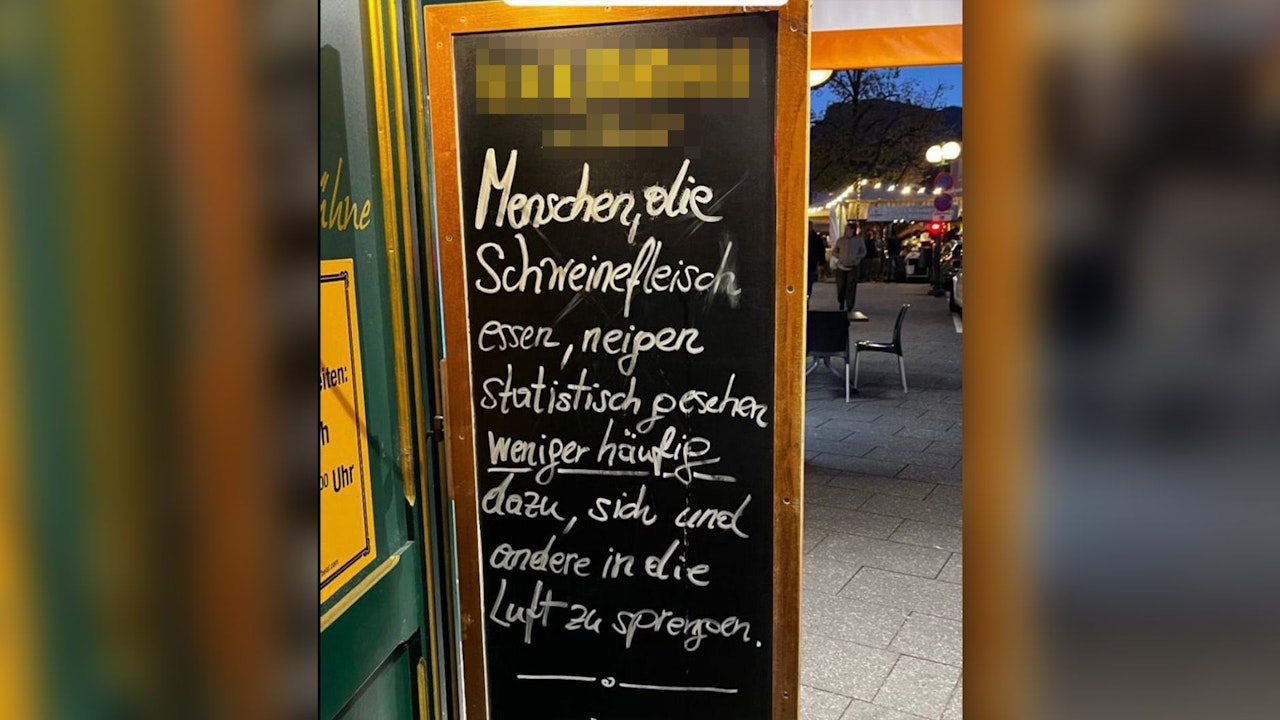 Menschen, die
Schweinefleisch
essen, neigen
statistisch gesehen
weniger häufig
dazu, sich und
andere in die
Luft zu sprengen.
ühne
iten:
h
00 Uhr